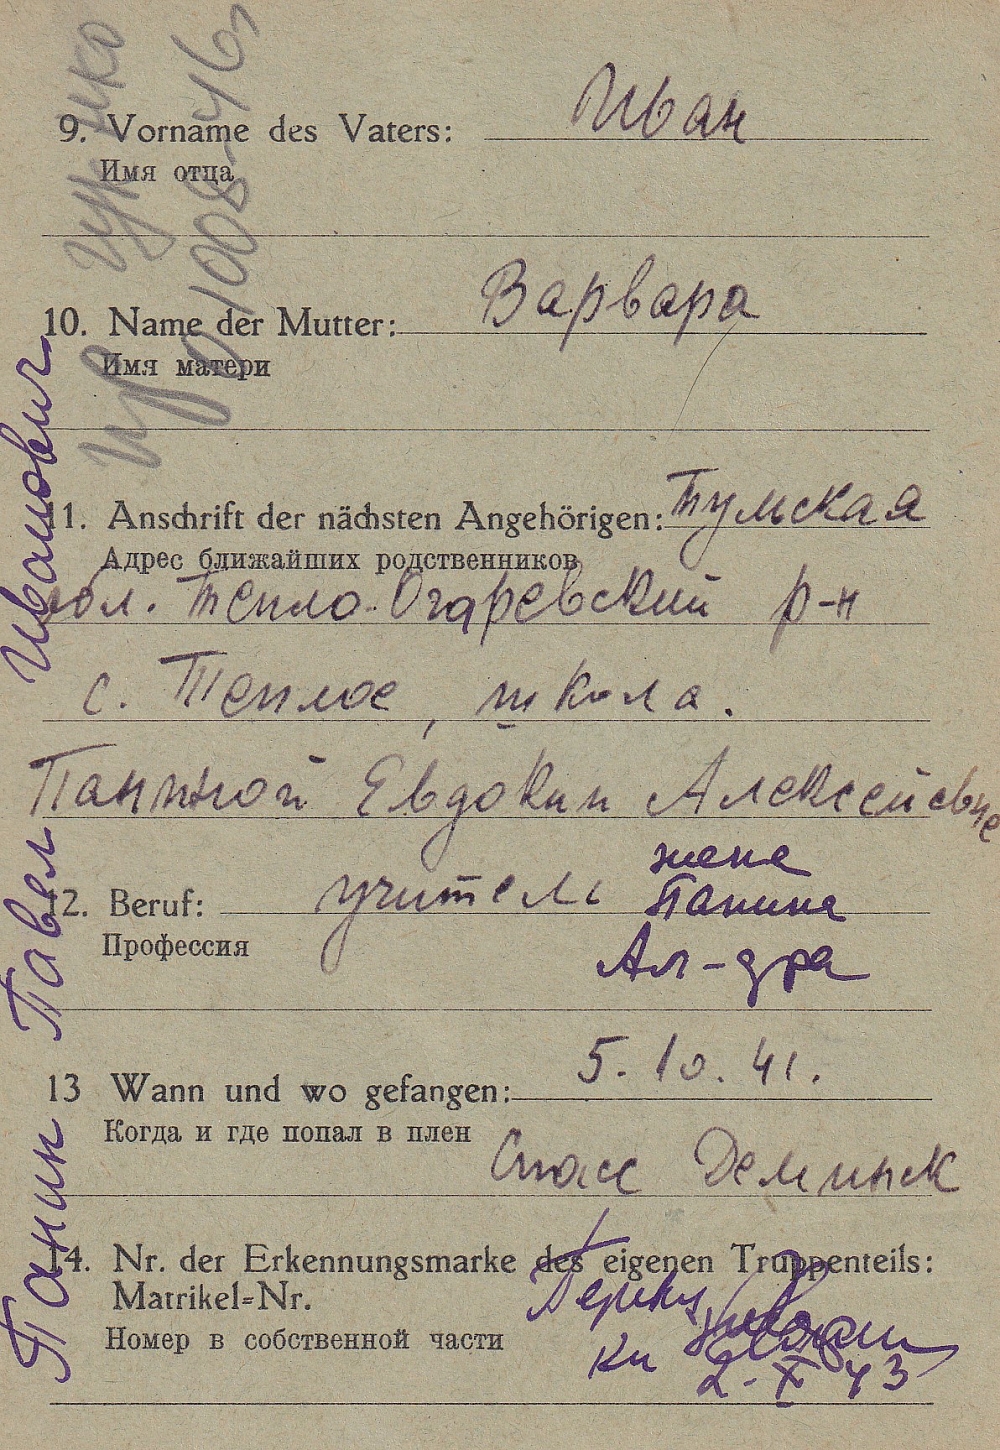 9. Vorname des Vaters: Иван
Имя отца
10. Name der Mutter: Варвара
Имя матери
11. Anschrift der nächsten Angehörigen: Тульская
Адрес ближайших родственников
обл. Тепло-Огаревский р-н
с. Теплое, школа.
Паниной Евдокии Алексеевне
жена
12. Beruf: учитель Панина
Профессия
Ал-дра
13 Wann und wo gefangen: 5.10.41.
Когда и где попал в плен
Спасс Деминск
14. Nr. der Erkennungsmarke des eigenen Truppenteils:
Matrikel=Nr.
Номер в собственной части
2-X 43
Панин Павел Иванович
1008-46г